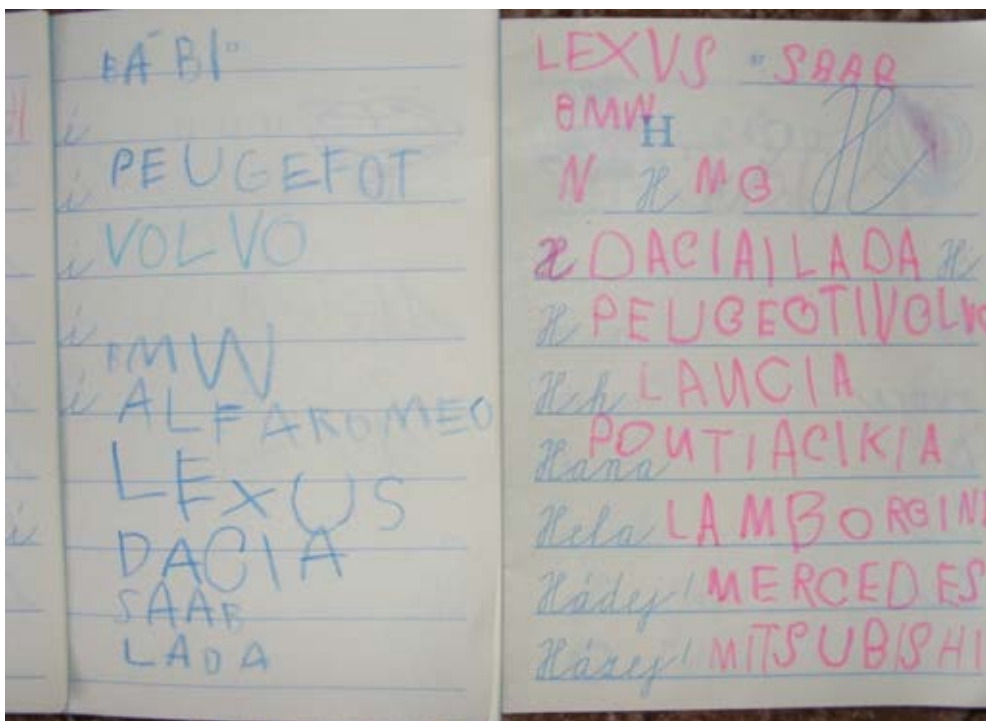 BÁBI"
i
PEUGEFOT
i
VOLVO
i
i
BMW
i
ALFAROMEO
LEXUS
i
DACIA
SAAB
LADA
LEXUS "SAAB
BMW
H
H
N H MG
H DACIA|LADA H
H PEUGEOT|VOLVO
H h LAUCIA
Hana POUTIAC|KIA
Hela LAMBORGINI
Hádej! MERCEDES
Házej! MITSUBISHI